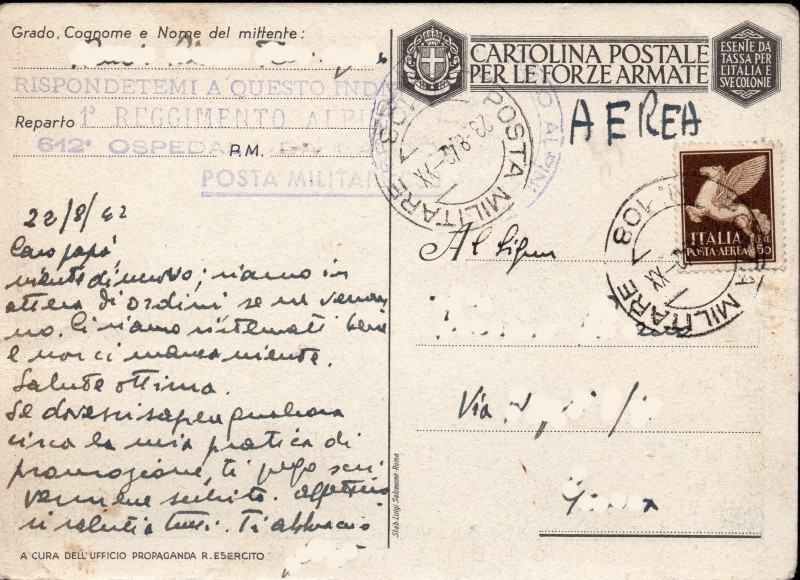 Grado, Cognome e Nome del mittente:
RISPONDETEMI A QUESTO IND
Reparto 1° REGGIMENTO ALPI
612° OSPEDA
P.M.
POSTA MILITA
22/8/42
Caro papà,
niente di nuovo; siamo in
attesa di ordini se ne verran
no. Ci siamo sistemati bene
e non ci manca niente.
Salute ottima.
Se dovessi sapere qualcosa
circa la mia pratica di
promozione, ti prego scri
vermene subito.
saluti a tutti. Ti abbraccio
A CURA DELL'UFFICIO PROPAGANDA R. ESERCITO
Stab. Luigi Salomone - Roma
CARTOLINA POSTALE
PER LE FORZE ARMATE
ESENTE DA
TASSA PER
L'ITALIA E
SUE COLONIE
AEREA
POSTA MILITARE
23-8-42-XX
ALPINI
POSTA MILITARE N. 108
ITALIA
CENT. 50
POSTA-AEREA
Al Signor
Via